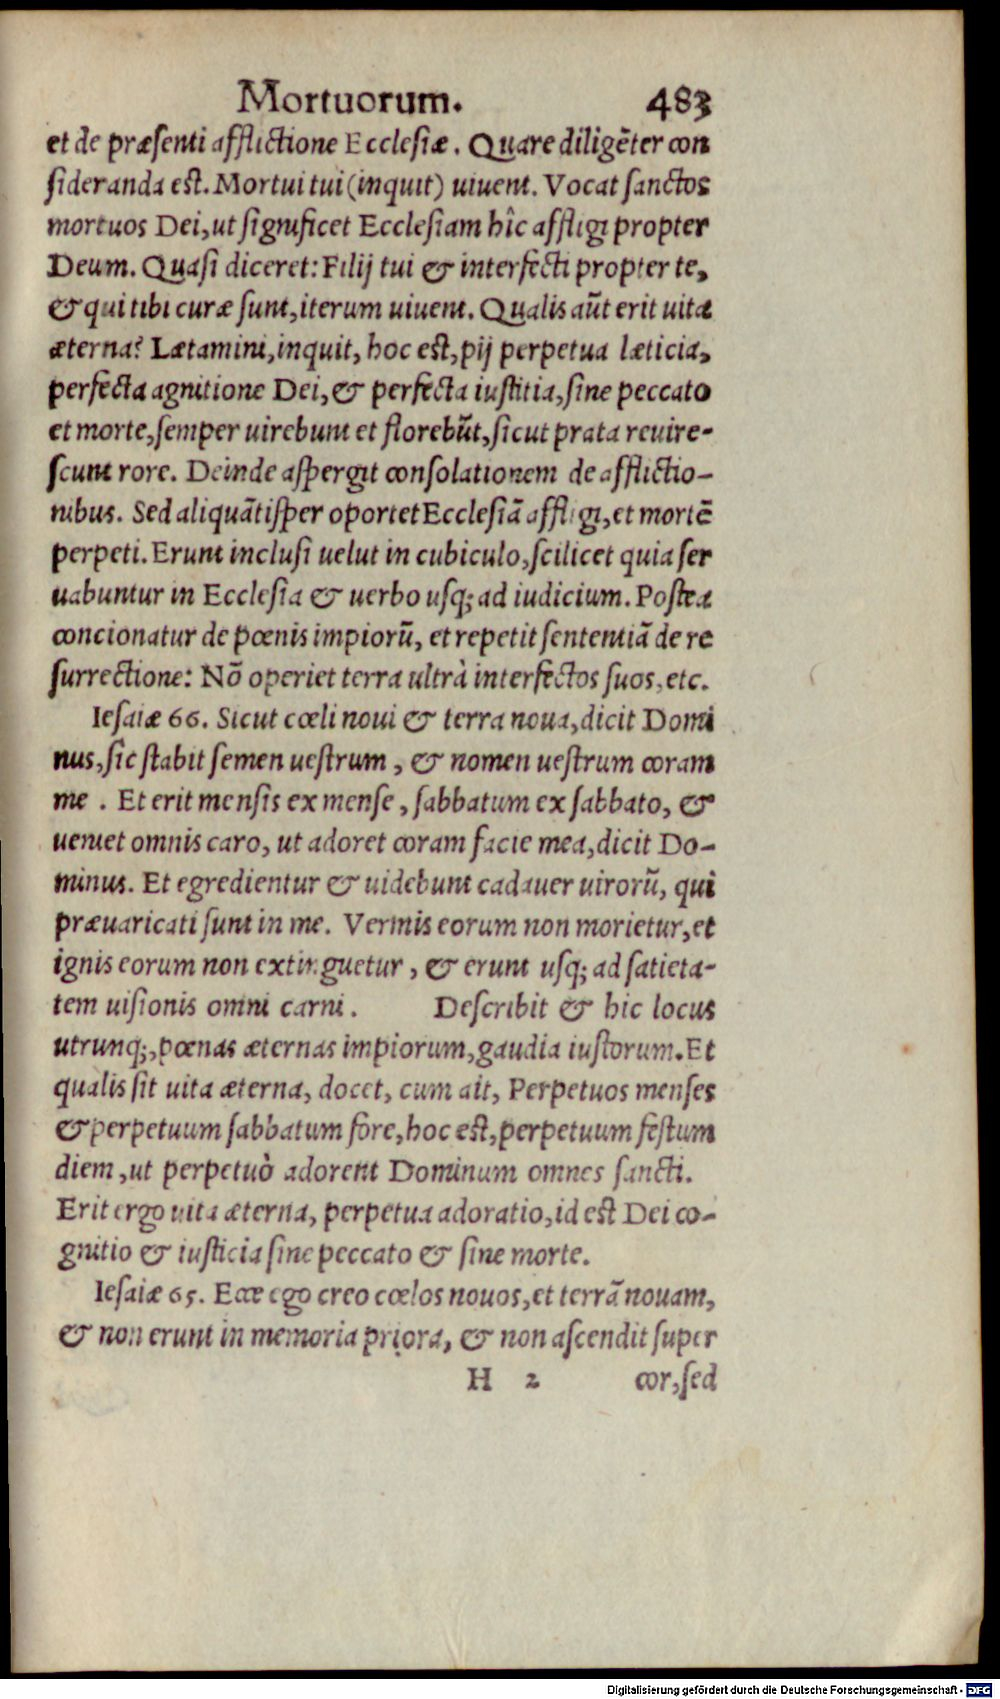 Mortuorum. 483
et de præsenti afflictione Ecclesiæ. Quare diligẽter con
sideranda est. Mortui tui (inquit) uiuent. Vocat sanctos
mortuos Dei, ut significet Ecclesiam hîc affligi propter
Deum. Quasi diceret: Filij tui & interfecti propter te,
& qui tibi curæ sunt, iterum uiuent. Qualis aũt erit uita
æterna? Lætamini, inquit, hoc est, pij perpetua læticia,
perfecta agnitione Dei, & perfecta iustitia, sine peccato
et morte, semper uirebunt et florebũt, sicut prata reuire-
scunt rore. Deinde aspergit consolationem de afflictio-
nibus. Sed aliquãtisper oportet Ecclesiã affligi, et mortẽ
perpeti. Erunt inclusi uelut in cubiculo, scilicet quia ser
uabuntur in Ecclesia & uerbo usq; ad iudicium. Postea
concionatur de pœnis impiorũ, et repetit sententiã de re
surrectione: Nõ operiet terra ultrà interfectos suos, etc.
Iesaiæ 66. Sicut cœli noui & terra noua, dicit Domi
nus, sic stabit semen uestrum, & nomen uestrum coram
me. Et erit mensis ex mense, sabbatum ex sabbato, &
ueniet omnis caro, ut adoret coram facie mea, dicit Do-
minus. Et egredientur & uidebunt cadauer uirorũ, qui
præuaricati sunt in me. Vermis eorum non morietur, et
ignis eorum non extinguetur, & erunt usq; ad satieta-
tem uisionis omni carni. Describit & hic locus
utrunq;, pœnas æternas impiorum, gaudia iustorum. Et
qualis sit uita æterna, docet, cum ait, Perpetuos menses
& perpetuum sabbatum fore, hoc est, perpetuum festum
diem, ut perpetuò adorent Dominum omnes sancti.
Erit ergo uita æterna, perpetua adoratio, id est Dei co-
gnitio & iusticia sine peccato & sine morte.
Iesaiæ 65. Ecce ego creo cœlos nouos, et terrã nouam,
& non erunt in memoria priora, & non ascendit super
H 2 cor, sed
Digitalisierung gefördert durch die Deutsche Forschungsgemeinschaft - DFG